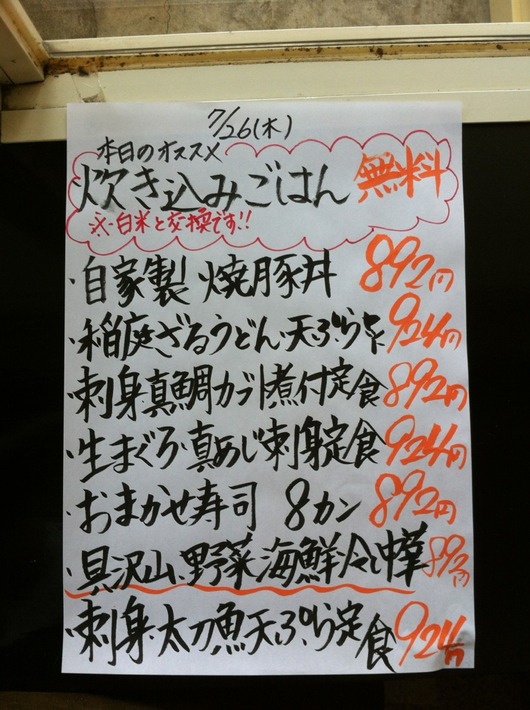 7/26(木)
本日のオススメ
炊き込みごはん 無料
※白米と交換です!!
・自家製 焼豚丼 892円
・稲庭ざるうどん・天ぷら 924円
・刺身・真鯛カブト煮付定食 892円
・生まぐろ・真あじ刺身定食 924円
・おまかせ寿司 8カン 892円
・具沢山、野菜海鮮冷し中華 892円
・刺身・太刀魚天ぷら定食 924円